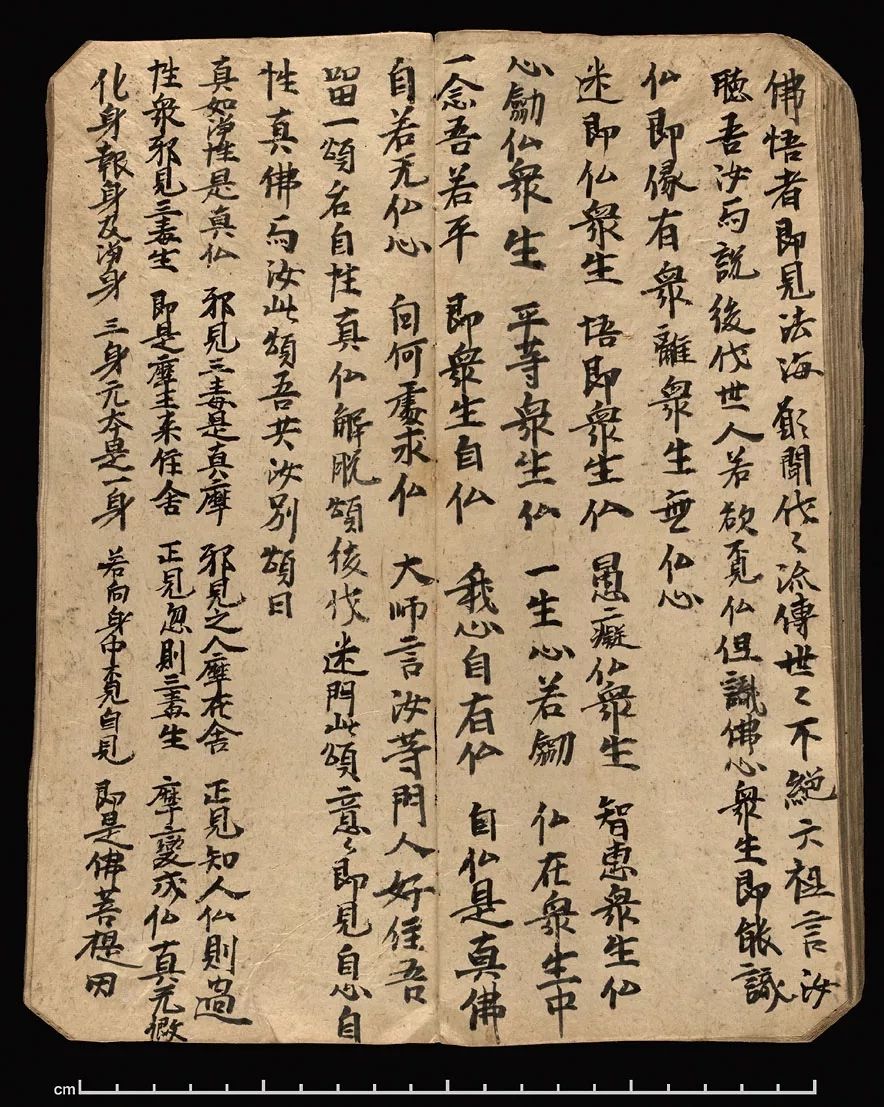 佛悟者即見法海願聞代〻流傳世〻不絕六祖言汝
聽吾汝与說後代世人若欲覓仏但識佛心衆生即能識
仏即像有衆離衆生無仏心
迷即仏衆生 悟即衆生仏 愚癡仏衆生 智惠衆生仏
心劒仏衆生 平等衆生仏 一生心若劒 仏在衆生中
一念吾若平 即衆生自仏 我心自有仏 自仏是真佛
自若无仏心 向何處求仏 大师言汝等門人好住吾
留一頌名自性真仏解脫頌後代迷門此頌意〻即見自心自
性真佛与汝此頌吾共汝別頌曰
真如淨性是真仏 邪見三毒是真摩 邪見之人摩在舍 正見知人仏則過
性衆邪見三毒生 即是摩王来住舍 正見忽則三毒生 摩變成仏真无假
化身報身及淨身 三身元本是一身 若向身中覓自見 即是佛菩提因
cm